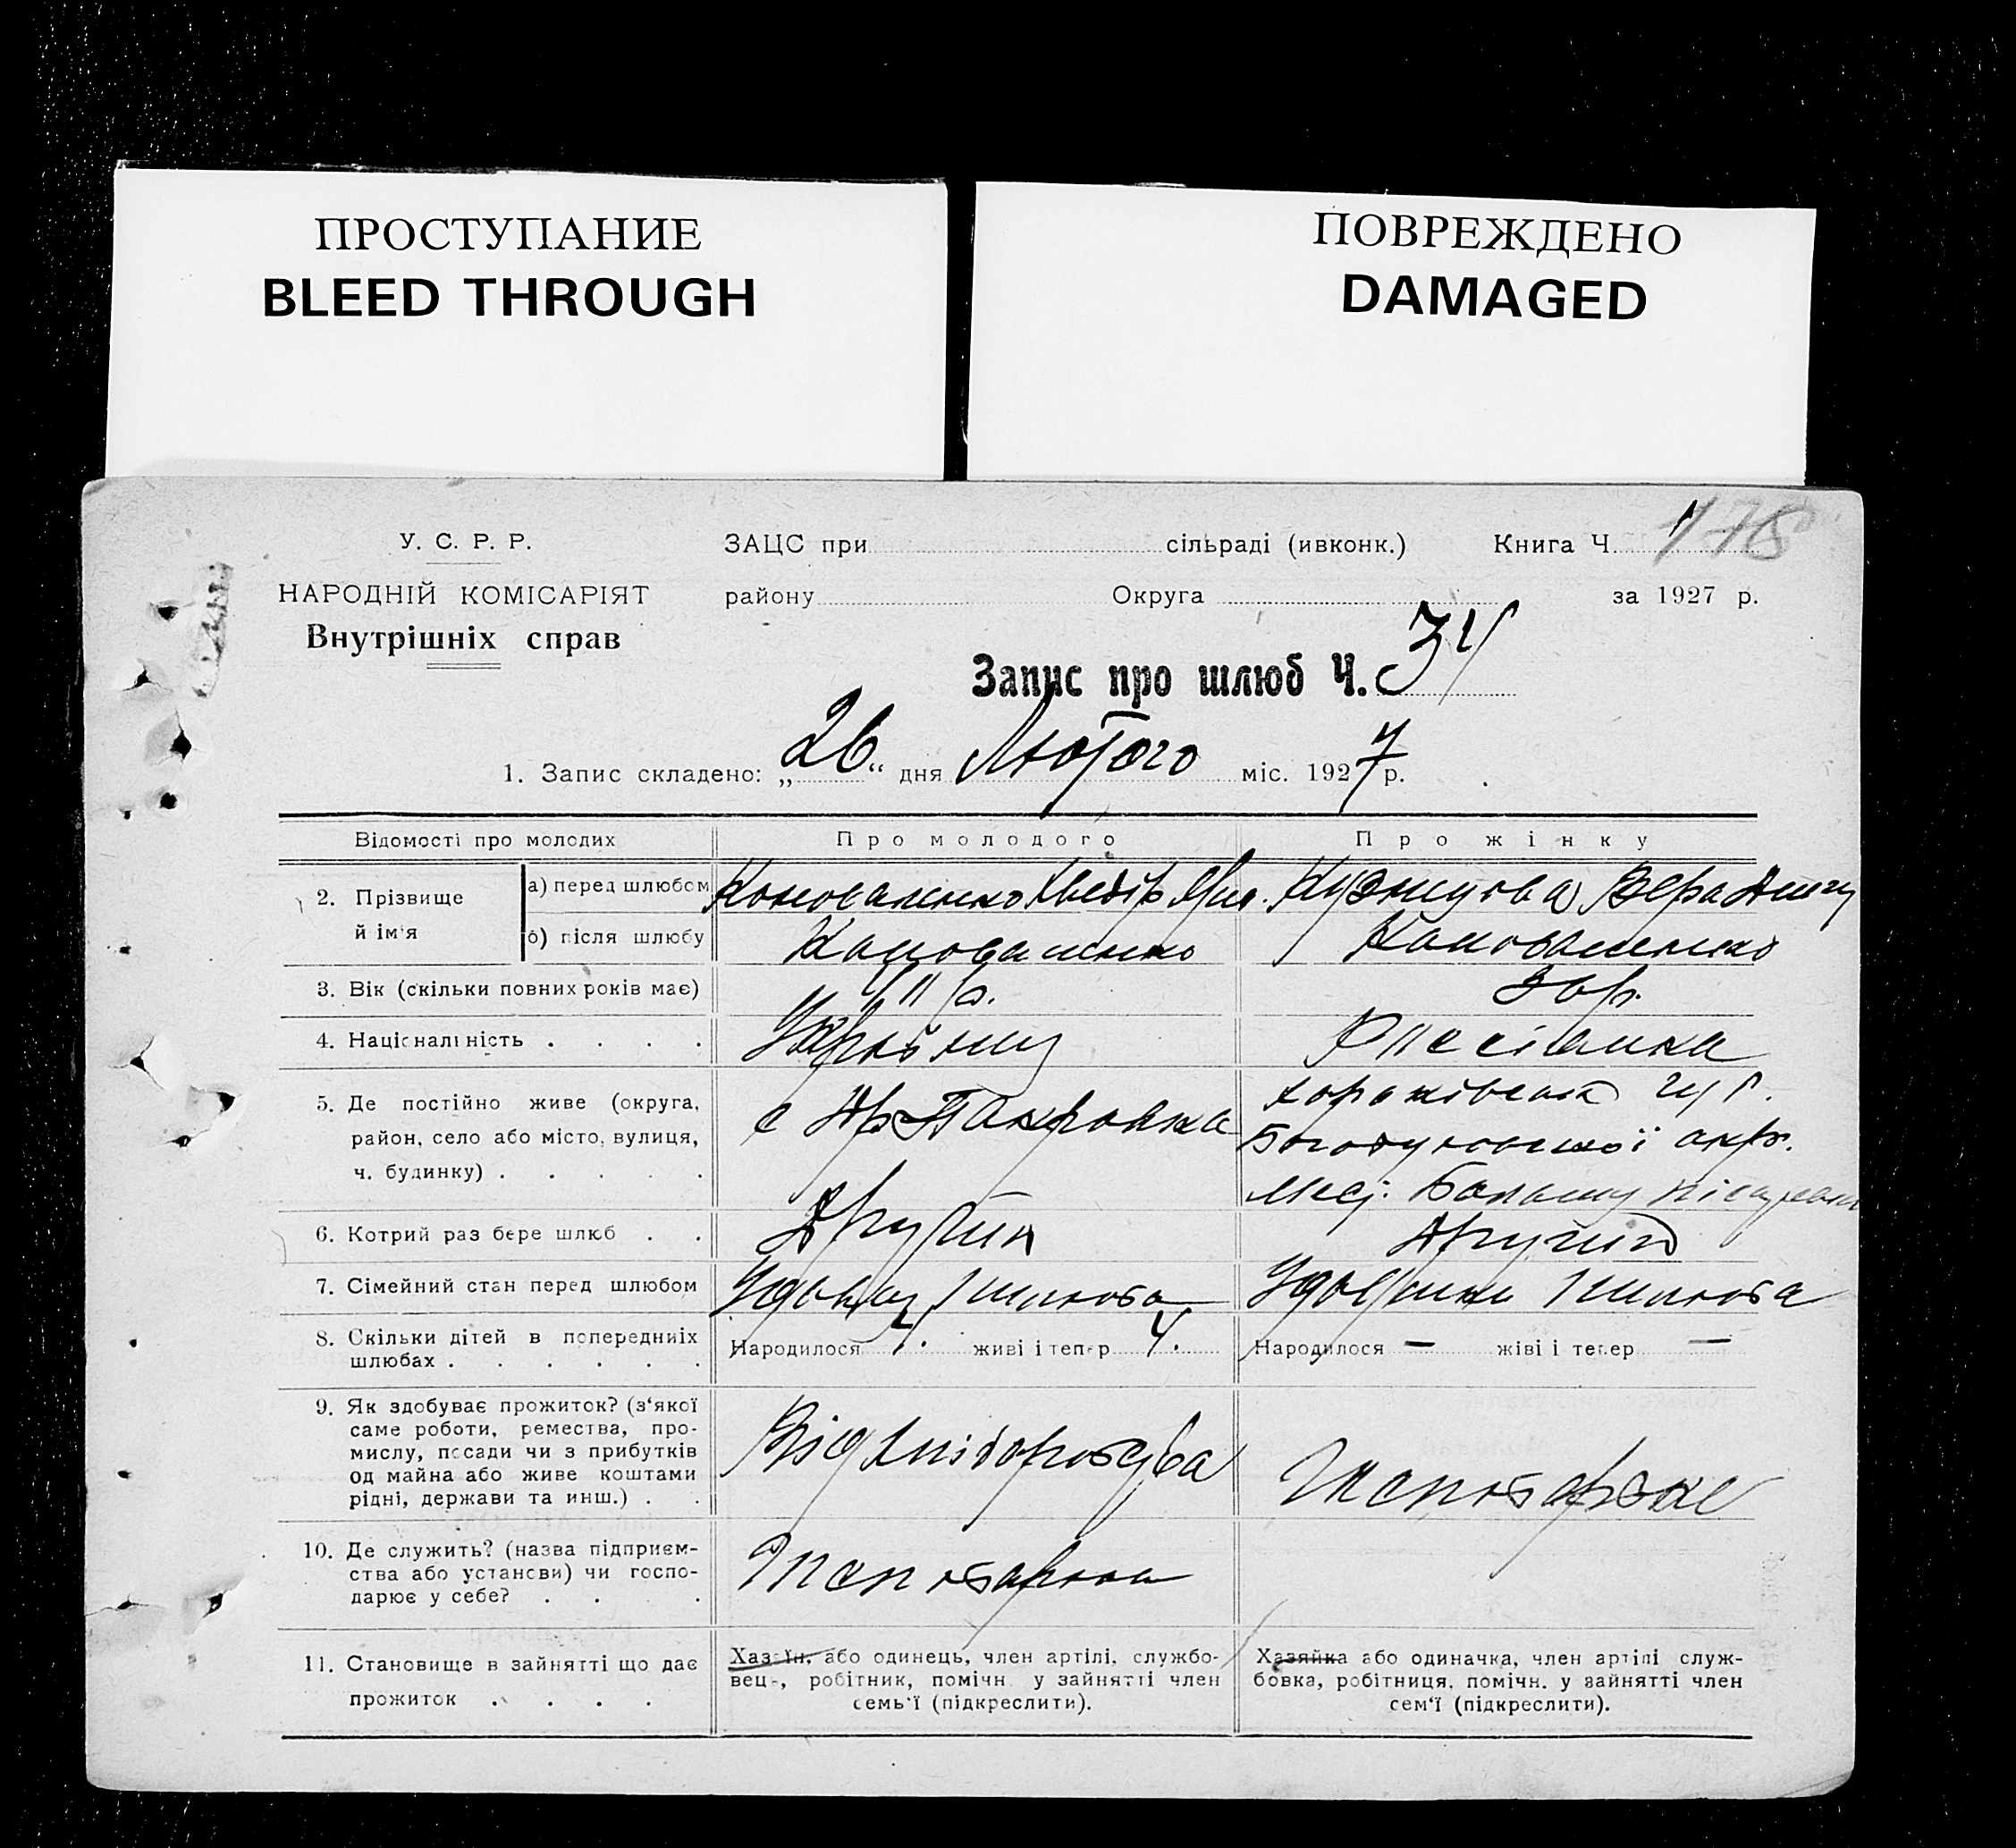 ПРОСТУПАНИЕ
BLEED THROUGH
ПОВРЕЖДЕНО
DAMAGED
У. С. Р. Р.
НАРОДНІЙ КОМІСАРІЯТ
Внутрішніх справ
ЗАЦС при сільраді (ивконк.) Книга Ч. 178
району Округа за 1927 р.
Запис про шлюб Ч. 34
1. Запис складено: „26“ дня Лютого міс. 1927 р.
Відомості про молодих
Про молодого
Про жінку
2. Прізвище й ім'я
а) перед шлюбом
Коноваленко Хведір
Кузнцова Вера
б) після шлюбу
Коноваленко
Коноваленко
3. Вік (скільки повних років має)
30 р.
4. Національність . . . .
Українец
Руссіанка
5. Де постійно живе (округа,
район, село або місто, вулиця,
ч. будинку) . . . . .
с Покровка
Харьківська губ.
Богодуховської окр.
6. Котрий раз бере шлюб . .
Другий
Другий
7. Сімейний стан перед шлюбом
Удовец 1 шлюба
1 шлюба
8. Скільки дітей в попередниіх
шлюбах . . . . . .
Народилося 4. живі і тепер 4.
Народилося — жіві і тепер —
9. Як здобуває прожиток? (з‘якої
саме роботи, ремества, про-
мислу, посади чи з прибутків
од майна або живе коштами
рідні, держави та инш.) . .
Від хліборобства
10. Де служить? (назва підприєм-
ства або установи) чи госпо-
дарює у себе? . . . .
11. Становище в зайнятті що дає
прожиток . . . .
Хазяїн, або одинець, член артілі, службо-
вець, робітник, помічн. у зайнятті член
семь‘ї (підкреслити).
Хазяйка або одиначка, член артілі служ-
бовка, робітниця, помічн. у зайнятті член
сем‘ї (підкреслити).